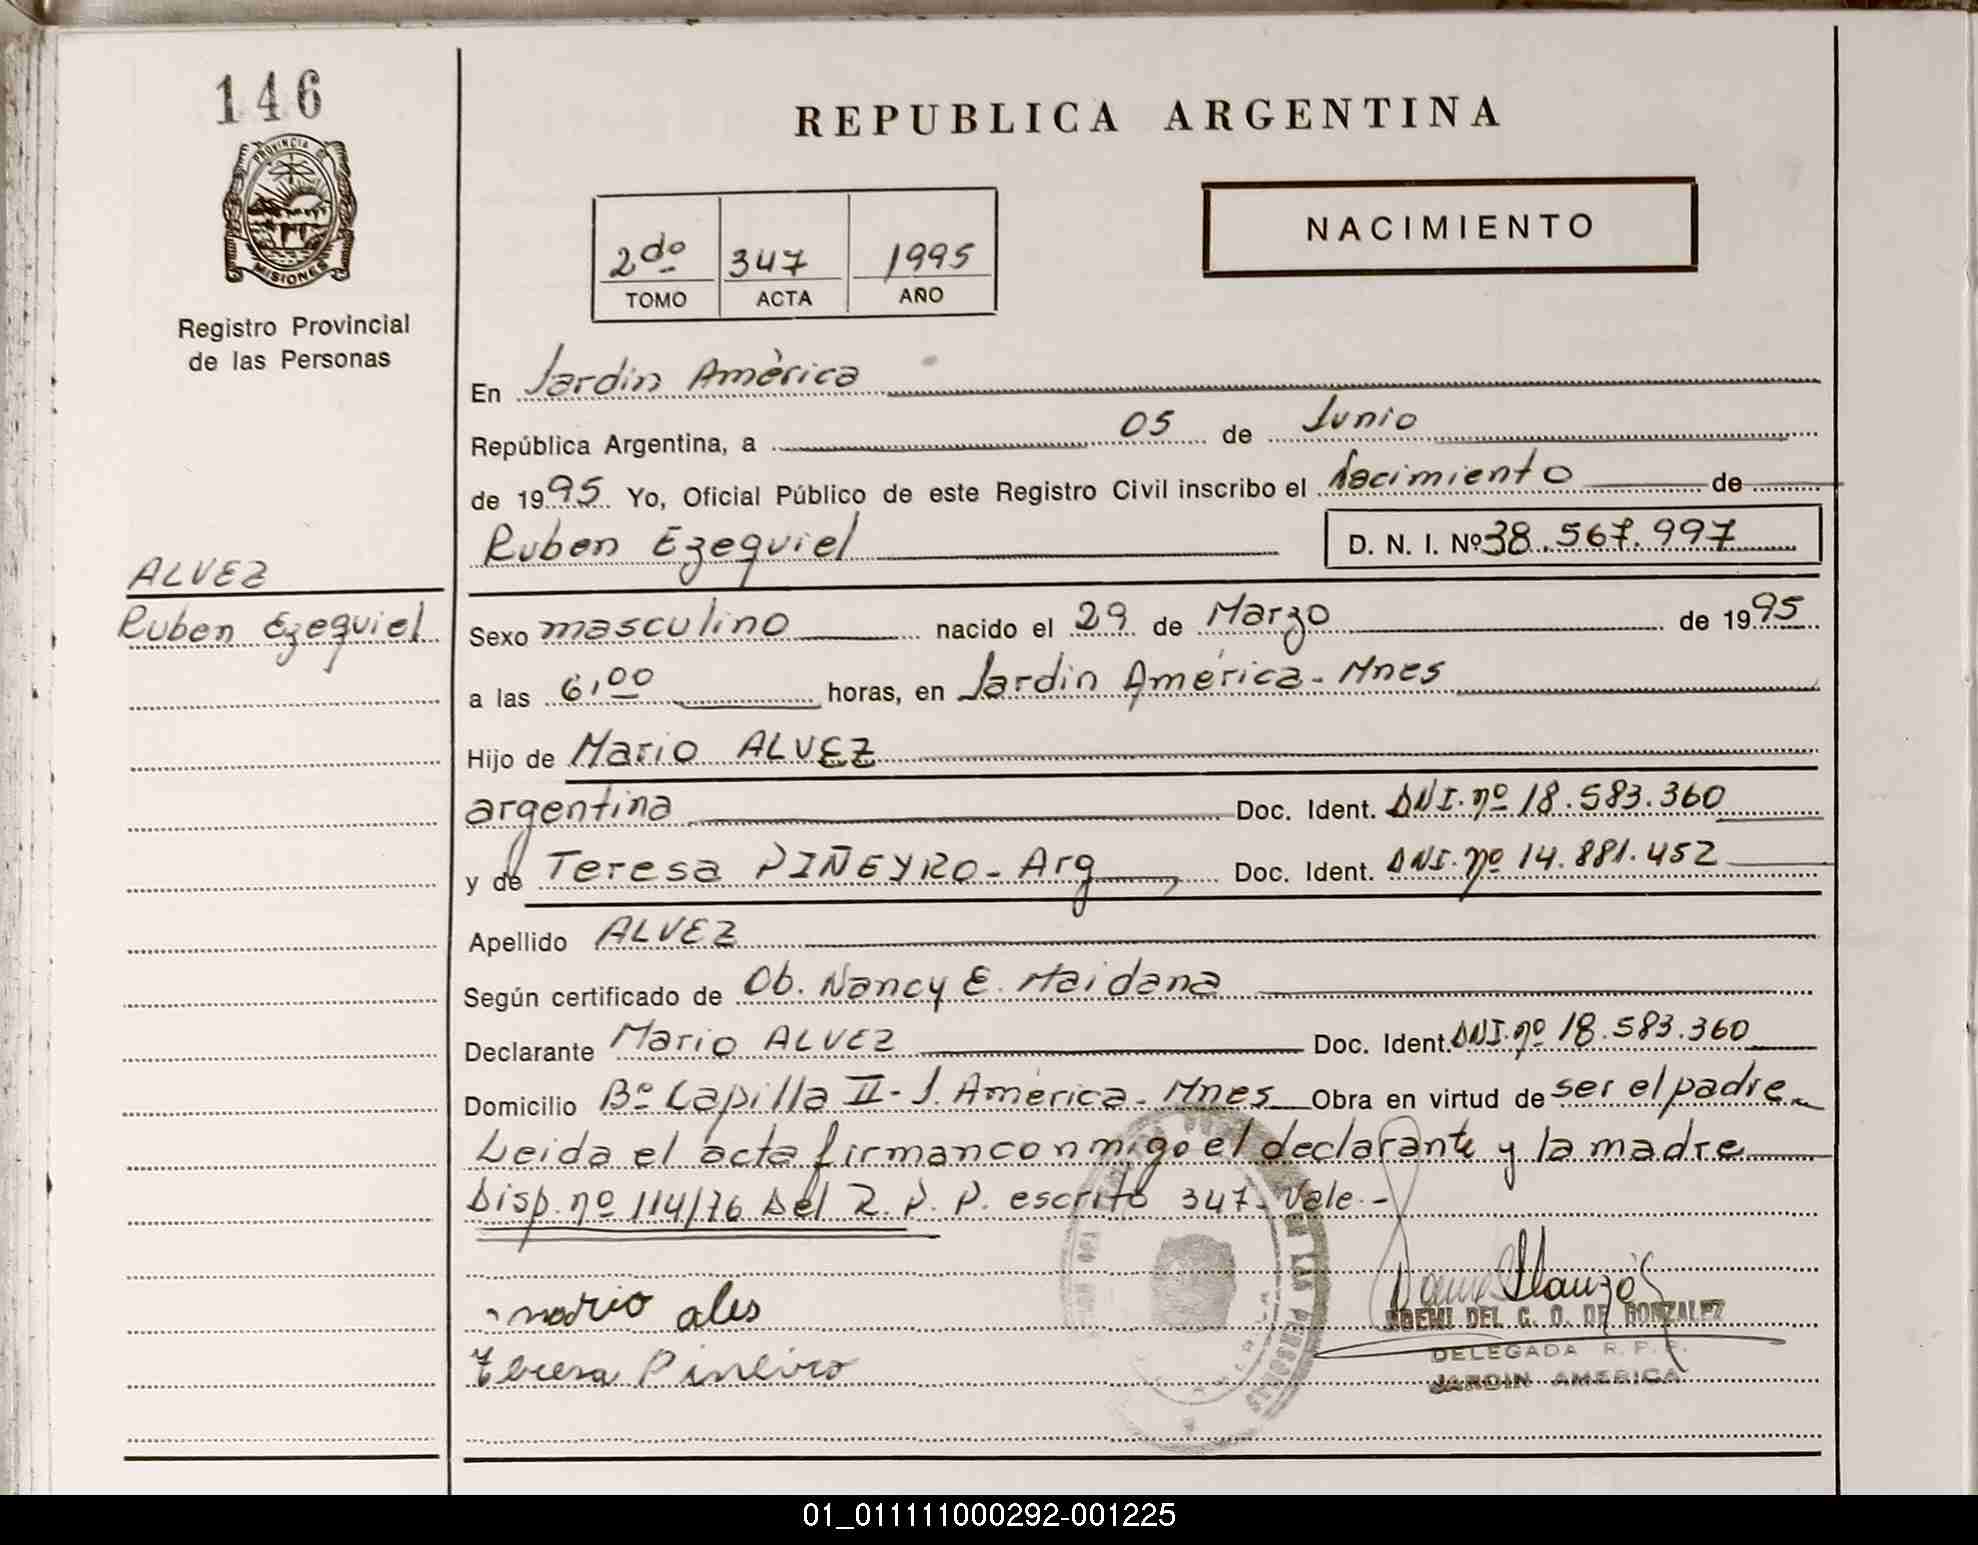 146
PROVINCIA DE
MISIONES
Registro Provincial
de las Personas
ALVEZ
Ruben Ezequiel
REPUBLICA ARGENTINA
2do 347 1995
TOMO ACTA AÑO
NACIMIENTO
En Jardin América
República Argentina, a 05 de Junio
de 1995 Yo, Oficial Público de este Registro Civil inscribo el Nacimiento de
Ruben Ezequiel D. N. I. Nº 38.567.997
Sexo masculino nacido el 29 de Marzo de 1995
a las 6,00 horas, en Jardin América - Mnes
Hijo de Mario ALVEZ
argentina Doc. Ident. DNI. nº 18.583.360
y de Teresa PIÑEYRO - Arg Doc. Ident. DNI. nº 14.881.452
Apellido ALVEZ
Según certificado de Ob. Nancy E. Maidana
Declarante Mario ALVEZ Doc. Ident. DNI. nº 18.583.360
Domicilio Bº Capilla II - J. América - Mnes Obra en virtud de ser el padre
Leida el acta firman conmigo el declarante y la madre
Disp. nº 114/76 Del R. P. P. escrito 347. Vale -
mario ales
Teresa Pineiro
DE LAS PERSONAS
NOEMI DEL C. O. DE GONZALEZ
DELEGADA R. P. P.
JARDIN AMERICA
01_011111000292-001225